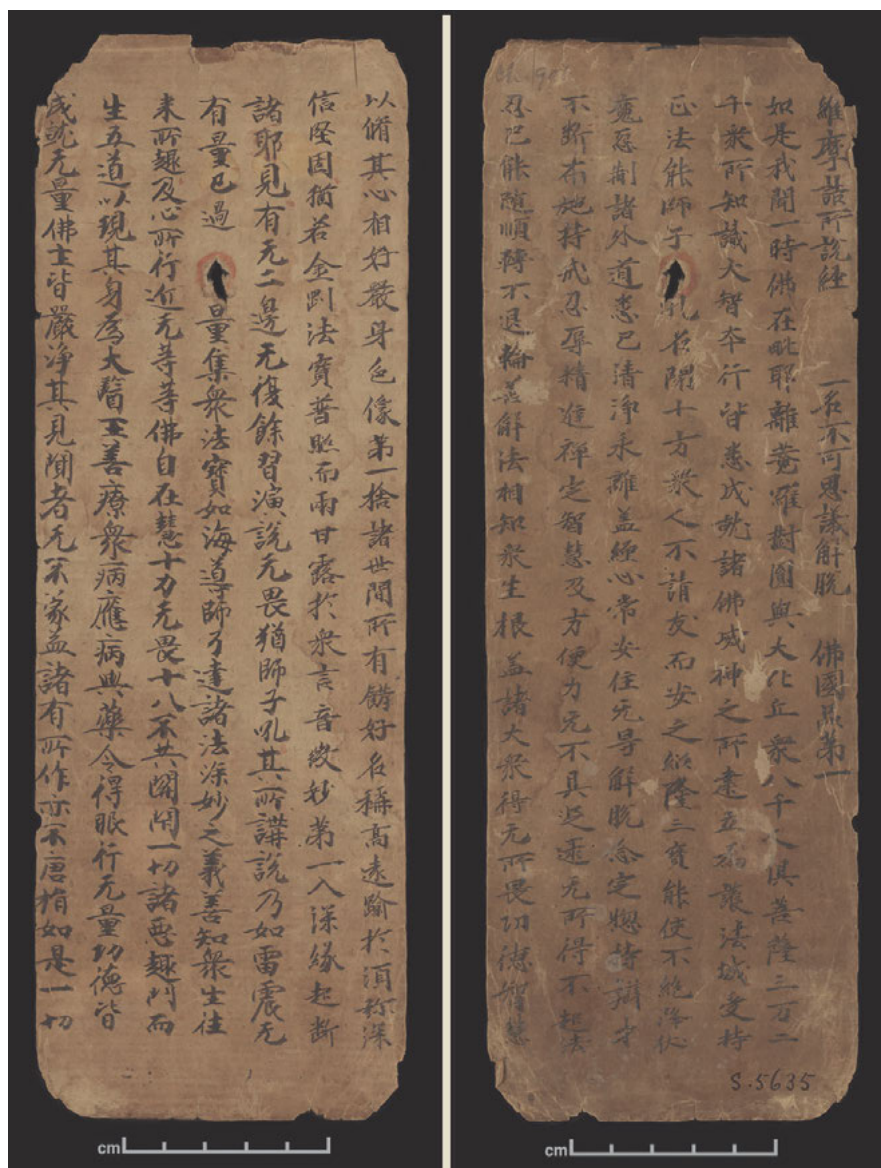 維摩詰所說經 一名不可思議解脫 佛國品第一
如是我聞一時佛在毗耶離菴羅樹園與大比丘衆八千人俱菩薩三万二
千衆所知識大智本行皆悉成就諸佛威神之所建立為護法城受持
正法能師子吼名聞十方衆人不請友而安之紹隆三寶能使不絕降伏
魔怨制諸外道悉已清淨永離盖纏心常安住无㝵解脫念定惣持辯才
不斷布施持戒忍辱精進禪定智慧及方便力无不具足逮无所得不起法
忍已能隨順轉不退輪善解法相知衆生根盖諸大衆得无所畏功德智慧
S.5635
cm
以脩其心相好嚴身色像第一捨諸世間所有餝好名稱高遠踰於須弥深
信堅固猶若金剛法寶普照而雨甘露於衆言音微妙第一入深緣起斷
諸耶見有无二邊无復餘習演說无畏猶師子吼其所講說乃如雷震无
有量已過量集衆法寶如海導師了達諸法深妙之義善知衆生往
來所趣及心所行近无等等佛自在慧十力无畏十八不共關閇一切諸惡趣門而
生五道以現其身為大醫王善療衆病應病與藥令得眼行无量功德皆
成就无量佛土皆嚴淨其見聞者无不蒙益諸有所作亦不唐捐如是一切
cm